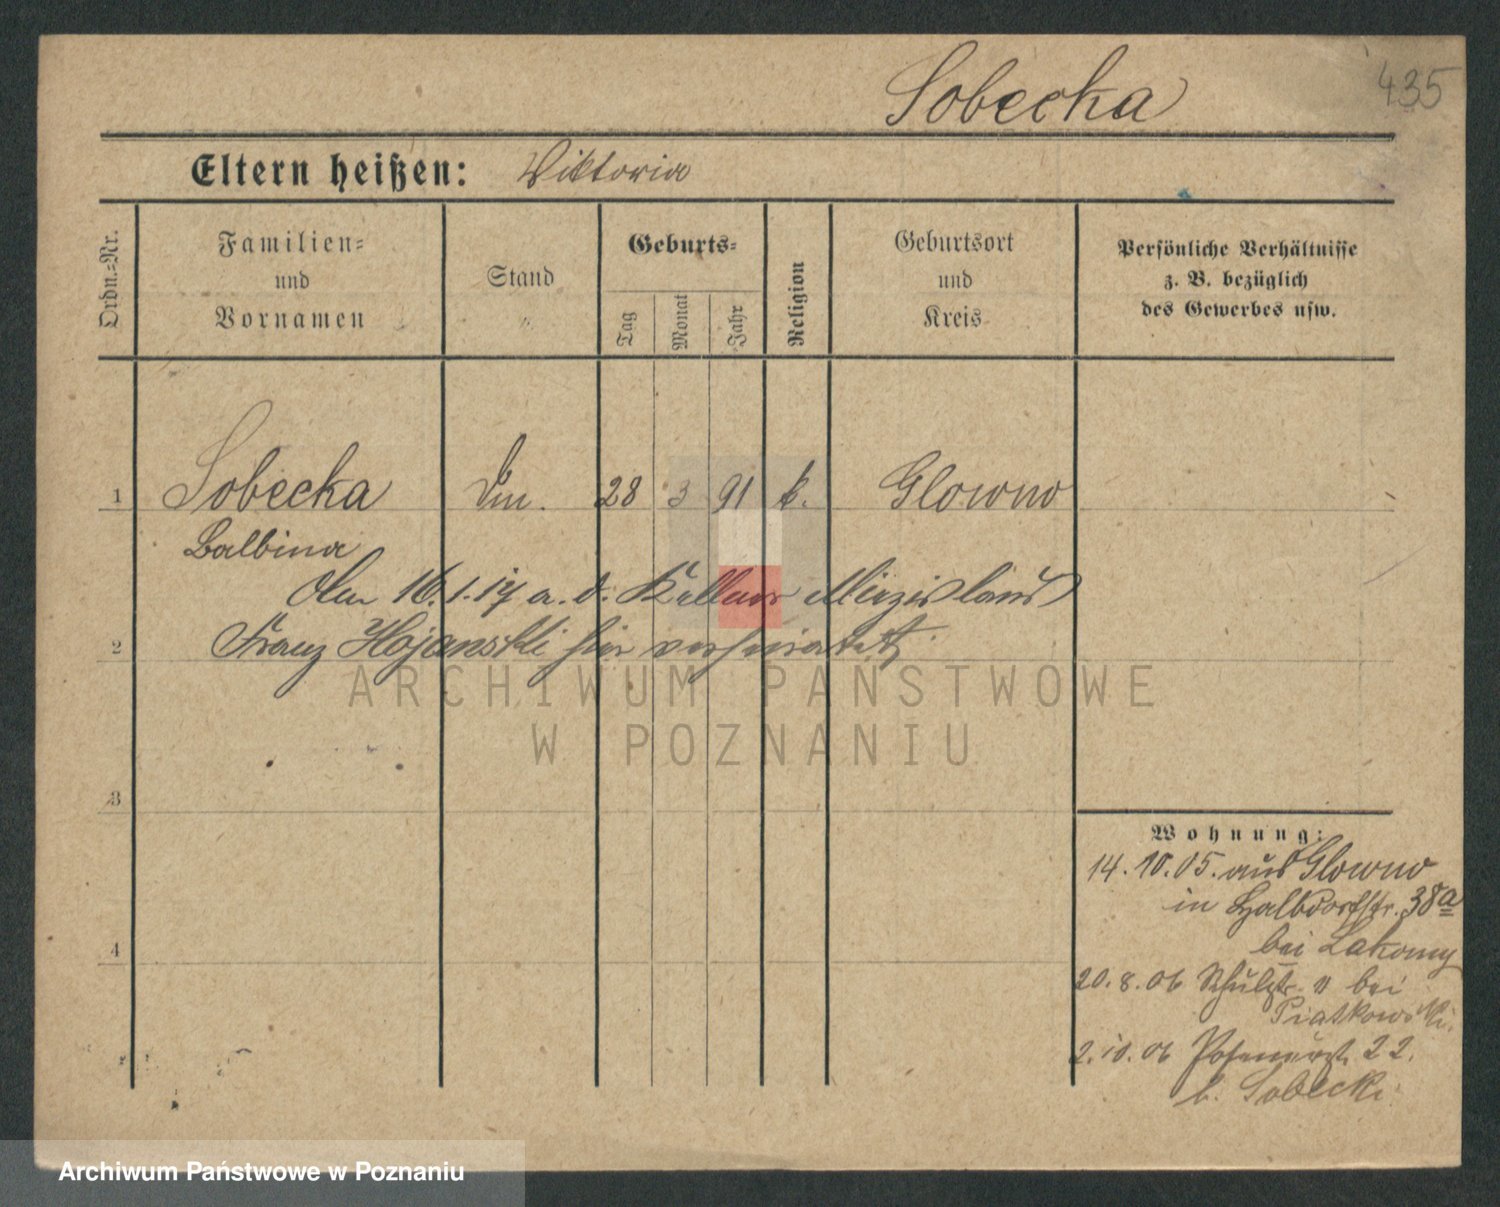 435
Sobecka
Eltern heißen: Viktoria
Ordn.=Nr.
Familien=
und
Vornamen
Stand
Geburts=
Tag
Monat
Jahr
Religion
Geburtsort
und
Kreis
Persönliche Verhältnisse
z. B. bezüglich
des Gewerbes usw.
1 Sobecka 28 3 91 k. Glowno
Balbina
16.1.17 a. d. Kellner Miezislaus
2 Franz Hojanski hier verheiratet
3
4
Wohnung:
14.10.05. aus Glowno
in Halbdorfstr. 38a
bei Lakomy
20.8.06 Schulstr. 11 bei
Piatkowski.
2.10.06 22.
b. Sobecki
ARCHIWUM PAŃSTWOWE
W POZNANIU
Archiwum Państwowe w Poznaniu